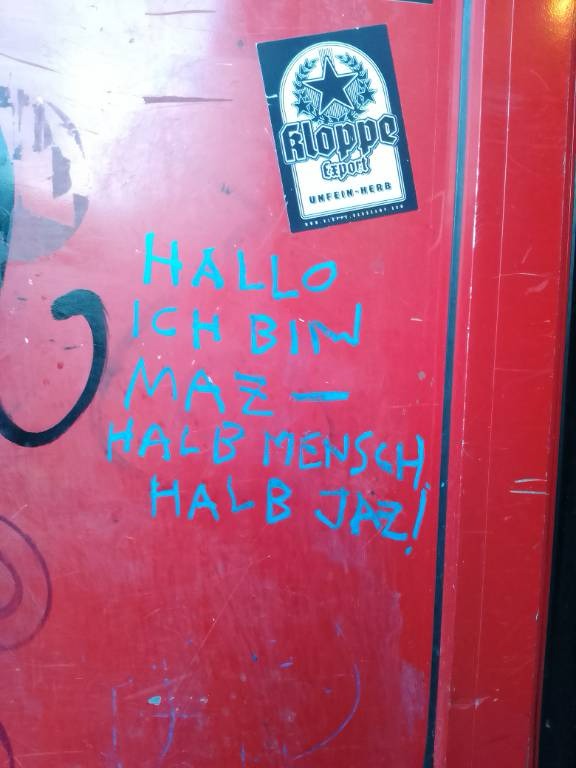 Kloppe
Export
UNFEIN-HERB
HALLO
ICH BIN
MAZ —
HALB MENSCH
HALB JAZ!